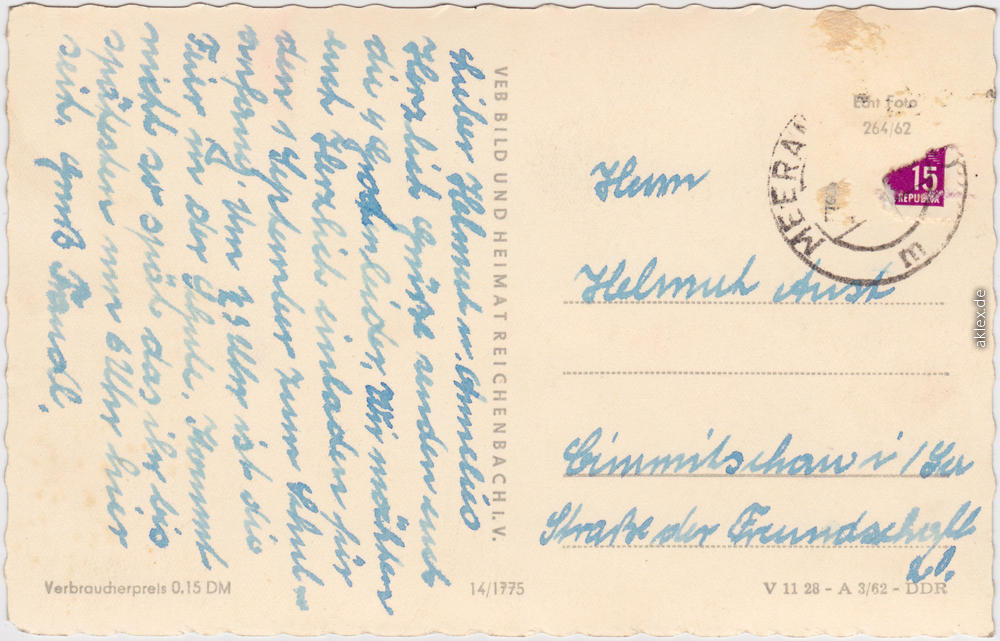 Lieber Helmut u. Annelie
Herzliche Grüße senden euch
die 4 Großenleider, Wir möchten
euch Herzlich einladen für
den 1 September zum Schul=
anfang. Um Uhr ist die
Feier in der Schule. Kommt
nicht so spät das ihr bis
spätesten um 6 Uhr hier
seit. Gruß Trandl.
VEB BILD UND HEIMAT REICHENBACH I. V.
Echt Foto
264/62
MEERA
15
REPUBLIK
m
Herrn
Helmuth Aust
Crimmitschau i/Sa
Straße der Freundschaft
20.
Verbraucherpreis 0,15 DM
14/1775
V 11 28 - A 3/62 - DDR
aklex.de